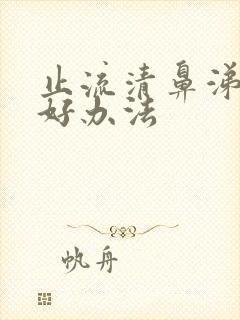 止流清鼻涕
好办法
帆舟